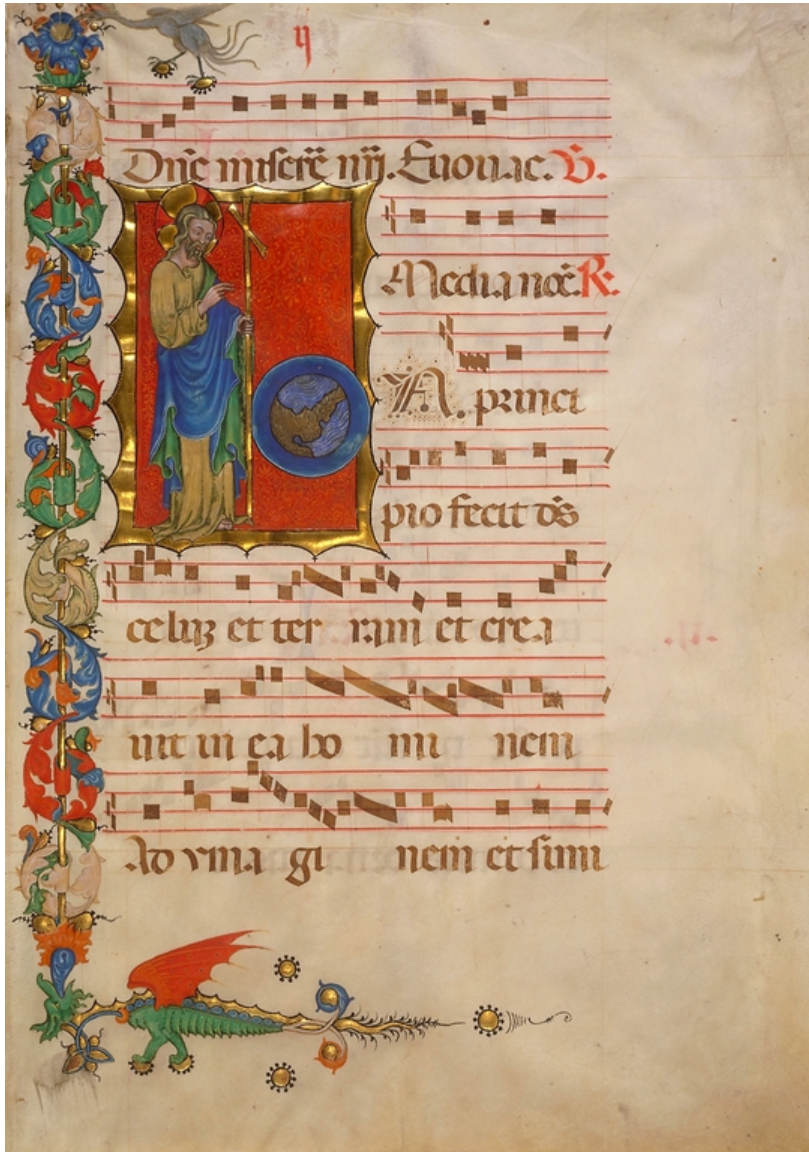 ij
Dn̄e miserē mīj. Euouae. V̄.
Media noc̄. R:
A princi
pio fecit ds̄
celuꝫ et ter ram et crea
uit in ea ho mi nem
Ad yma gi nem et simi